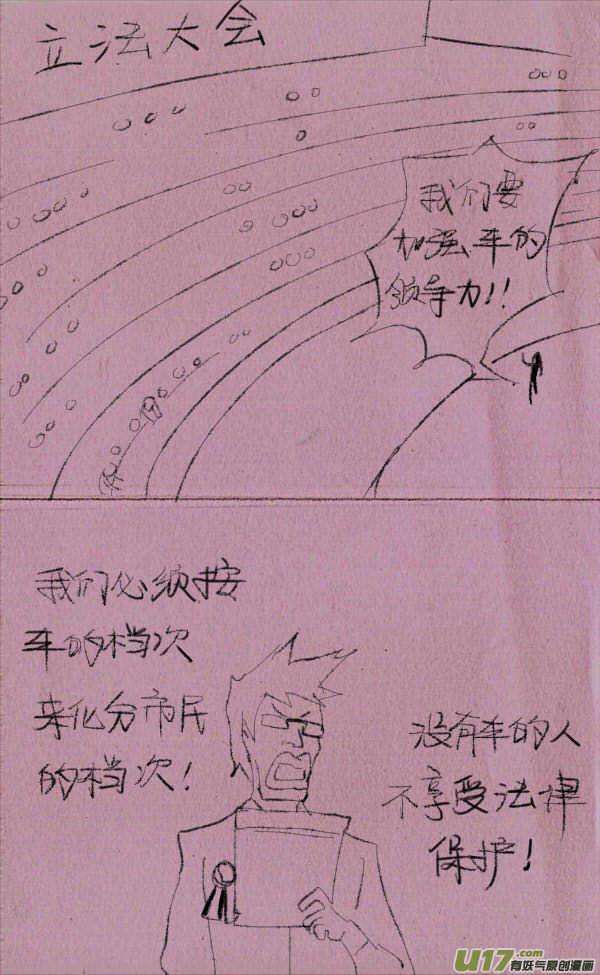 立法大会
我们要
加强车的
领导力!!
我们必须按
车的档次
来化分市民
的档次!
没有车的人
不享受法律
保护!
U17.com
有妖气原创漫画